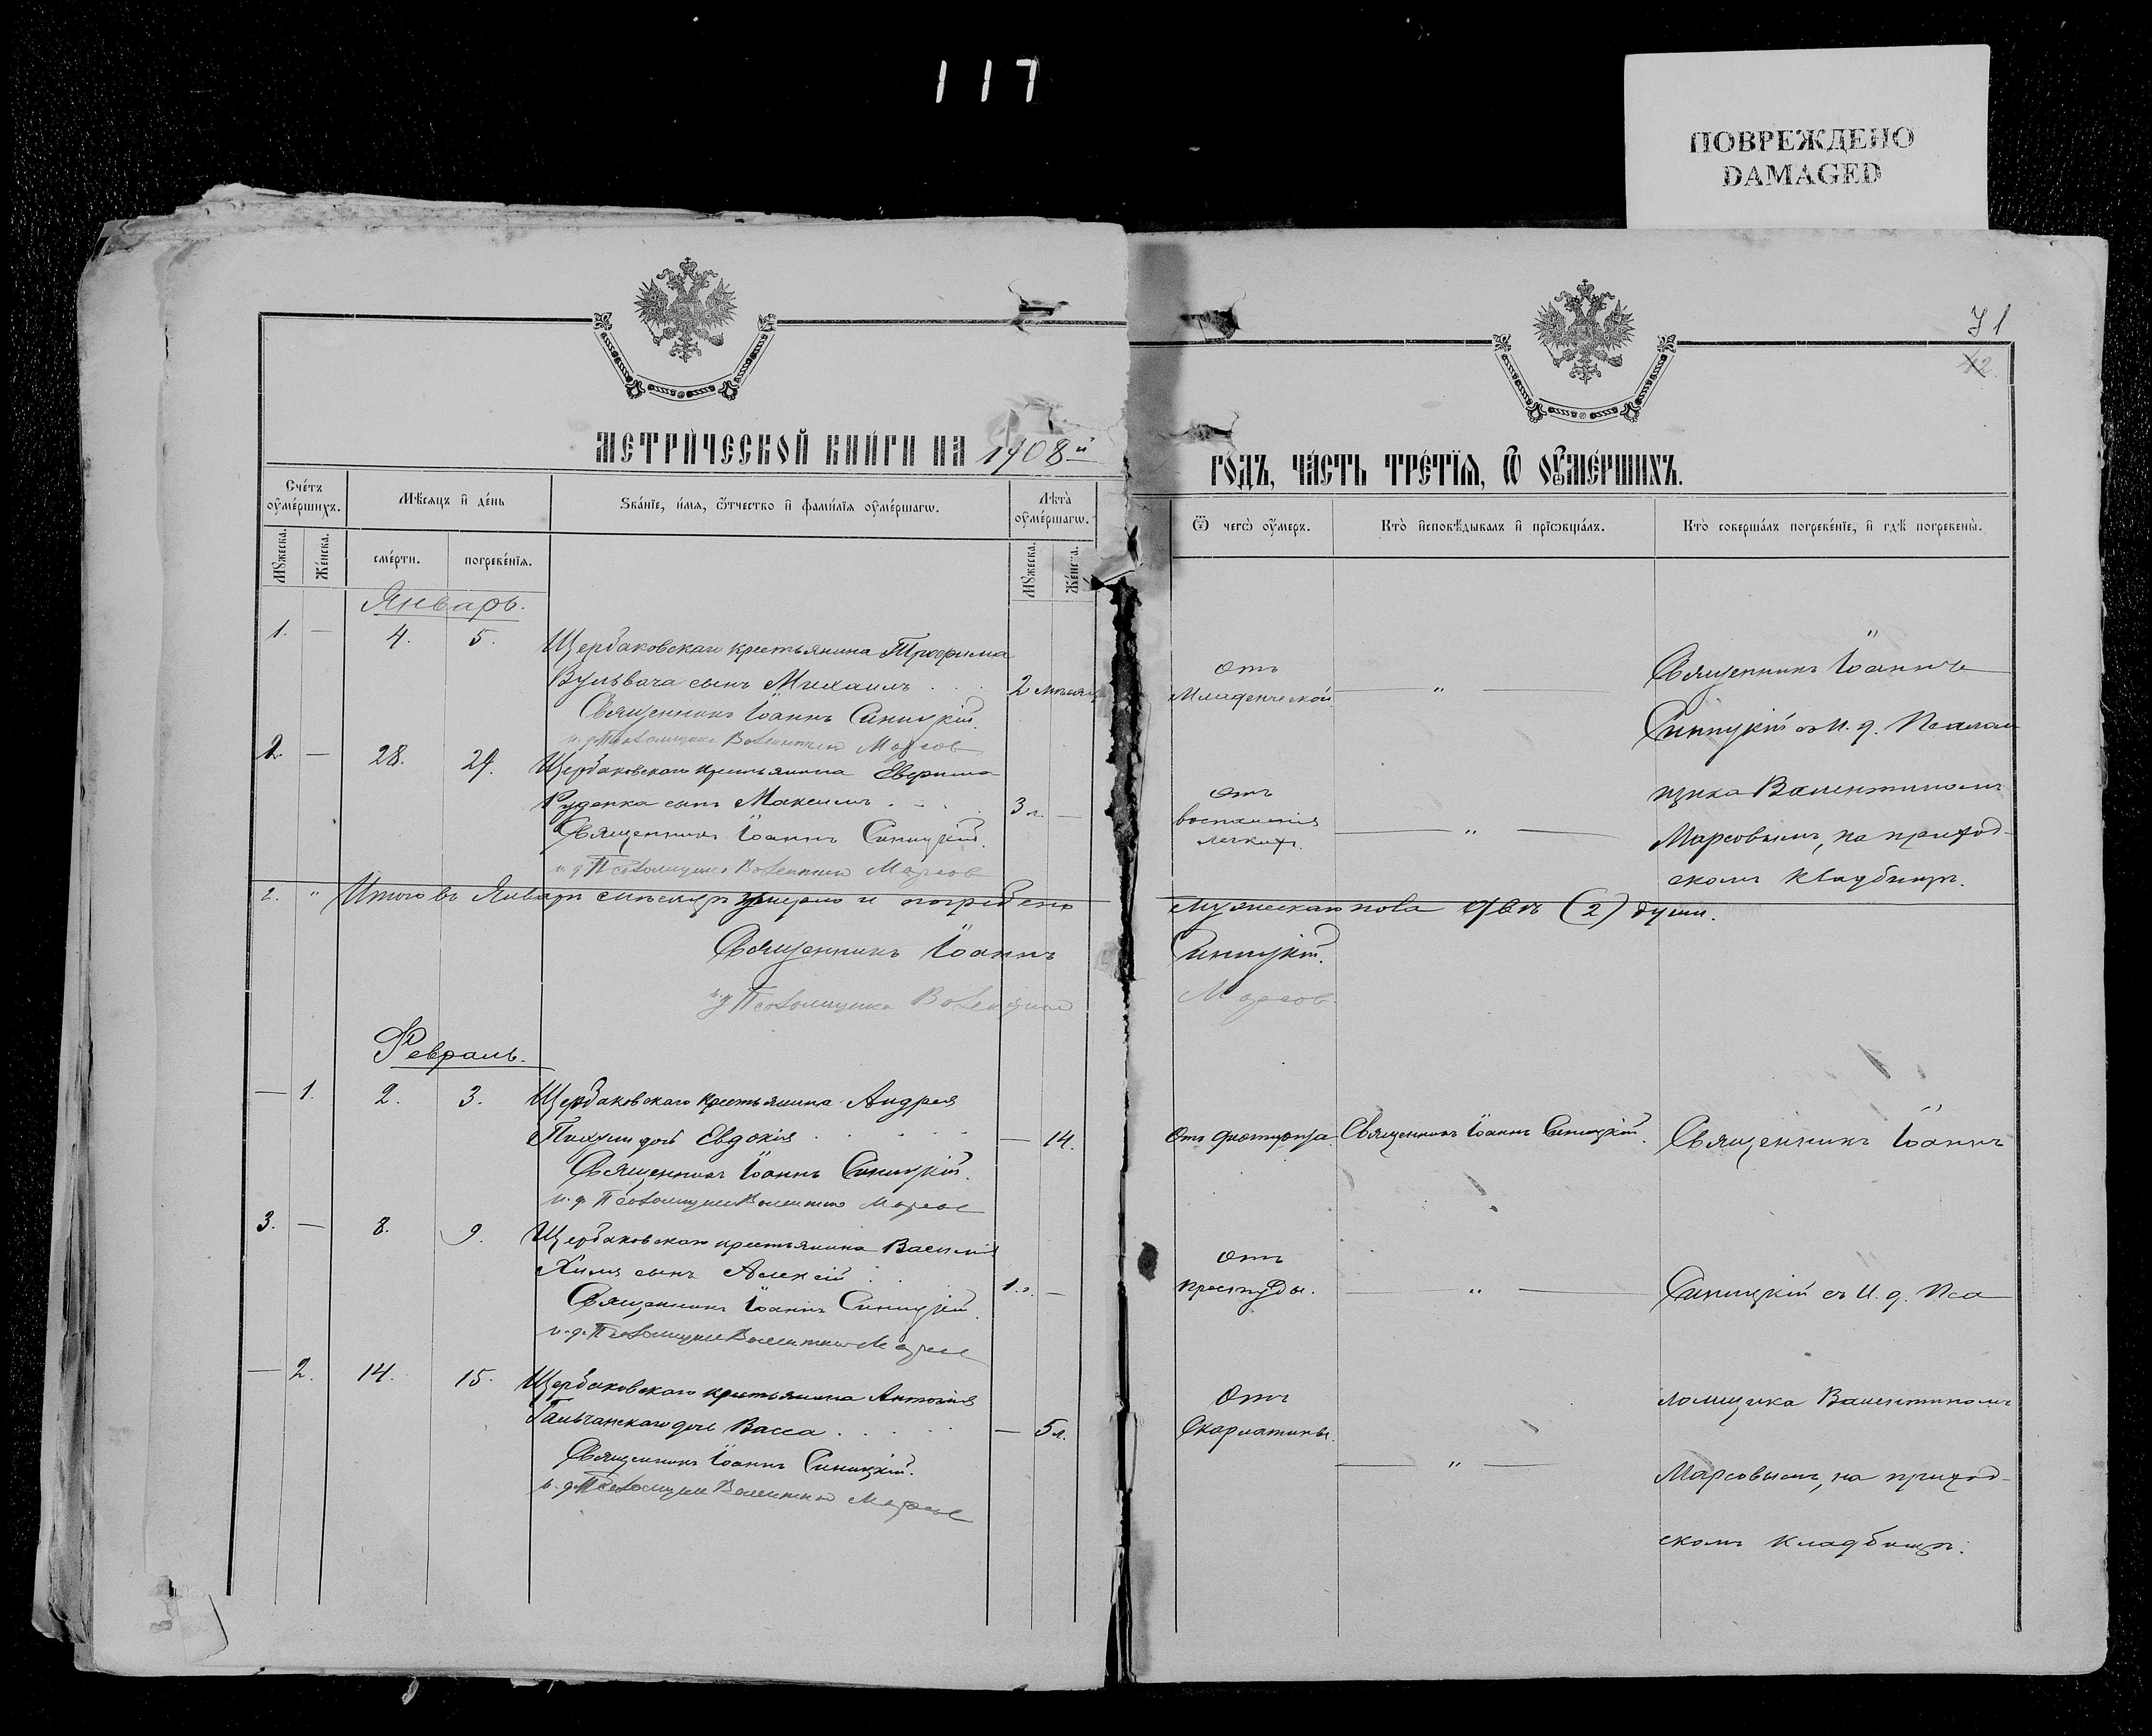 117
ПОВРЕЖДЕНО
DAMAGED
71
42
МЕТРИ́ЧЕСКОЙ КНИ́ГИ НА 1908й
ГО́ДЪ, ЧА́СТЬ ТРЕ́ТЇѦ, Ѡ҆ ОУ҆МЕ́РШИХЪ.
Сче́тъ оу҆ме́ршихъ.
Мѣ́сяцъ и҆ де́нь
Ѕва́нїе, и҆́мѧ, ѻ҆́тчество и҆ фами́лїѧ оу҆ме́ршагѡ.
Лѣ́та оу҆ме́ршагѡ.
Ѿ чегѡ̀ оу҆́меръ.
Кто̀ и҆сповѣ́дывалъ и҆ прїѡбща́лъ.
Кто̀ соверша́лъ погребе́нїе, и҆ гдѣ̀ погребены̀.
Мꙋ́жеска.
Же́нска.
сме́рти.
погребе́нїѧ.
Мꙋ́жеска.
Же́нска.
Январь.
1. — 4. 5. Щербаковскаго крестьянина Трофима
сынъ Михаилъ . . . 2 мѣсяц.
Священникъ Іоаннъ Синицкій.
и. д. Псаломщика Валентинъ Марсов
отъ
Младенческой — " —
Священникъ Іоаннъ
Синицкій съ И. д. Псалом
щика Валентиномъ
Марсовымъ, на приход-
скомъ кладбищѣ.
2. — 28. 29. Щербаковскаго крестьянина Ефрема
Руденка сынъ Максимъ . . . 3 л. —
Священникъ Іоаннъ Синицкій.
и. д. Псаломщика Валентинъ Марсов
отъ
воспаленія
легкихъ. — " —
2. " Итого въ Январѣ мѣсяцѣ умерло и погребено мужескаго пола двѣ (2) души.
Священникъ Іоаннъ Синицкій.
и. д. Псаломщика Валентинъ Марсов.
Февраль.
— 1. 2. 3. Щербаковскаго крестьянина Андрея
дочь Евдокія . . . . . — 14.
Священникъ Іоаннъ Синицкій.
и. д. Псаломщика Валентинъ Марсов
Отъ Священникъ Іоаннъ Синицкій. Священникъ Іоаннъ
3. — 8. 9. Щербаковскаго крестьянина Василія
сынъ Алексій . . 1. г. —
Священникъ Іоаннъ Синицкій.
и. д. Псаломщика Валентинъ Марсов
отъ
простуды. — " — Синицкій съ И. д. Пса
— 2. 14. 15. Щербаковскаго крестьянина Антонія
Гальчанскаго дочь Васса . . . . . — 5 л.
Священникъ Іоаннъ Синицкій.
и. д. Псаломщика Валентинъ Марсов
Отъ
Скарлатины.
— " —
ломщика Валентиномъ
Марсовымъ, на приход-
скомъ кладбищѣ.